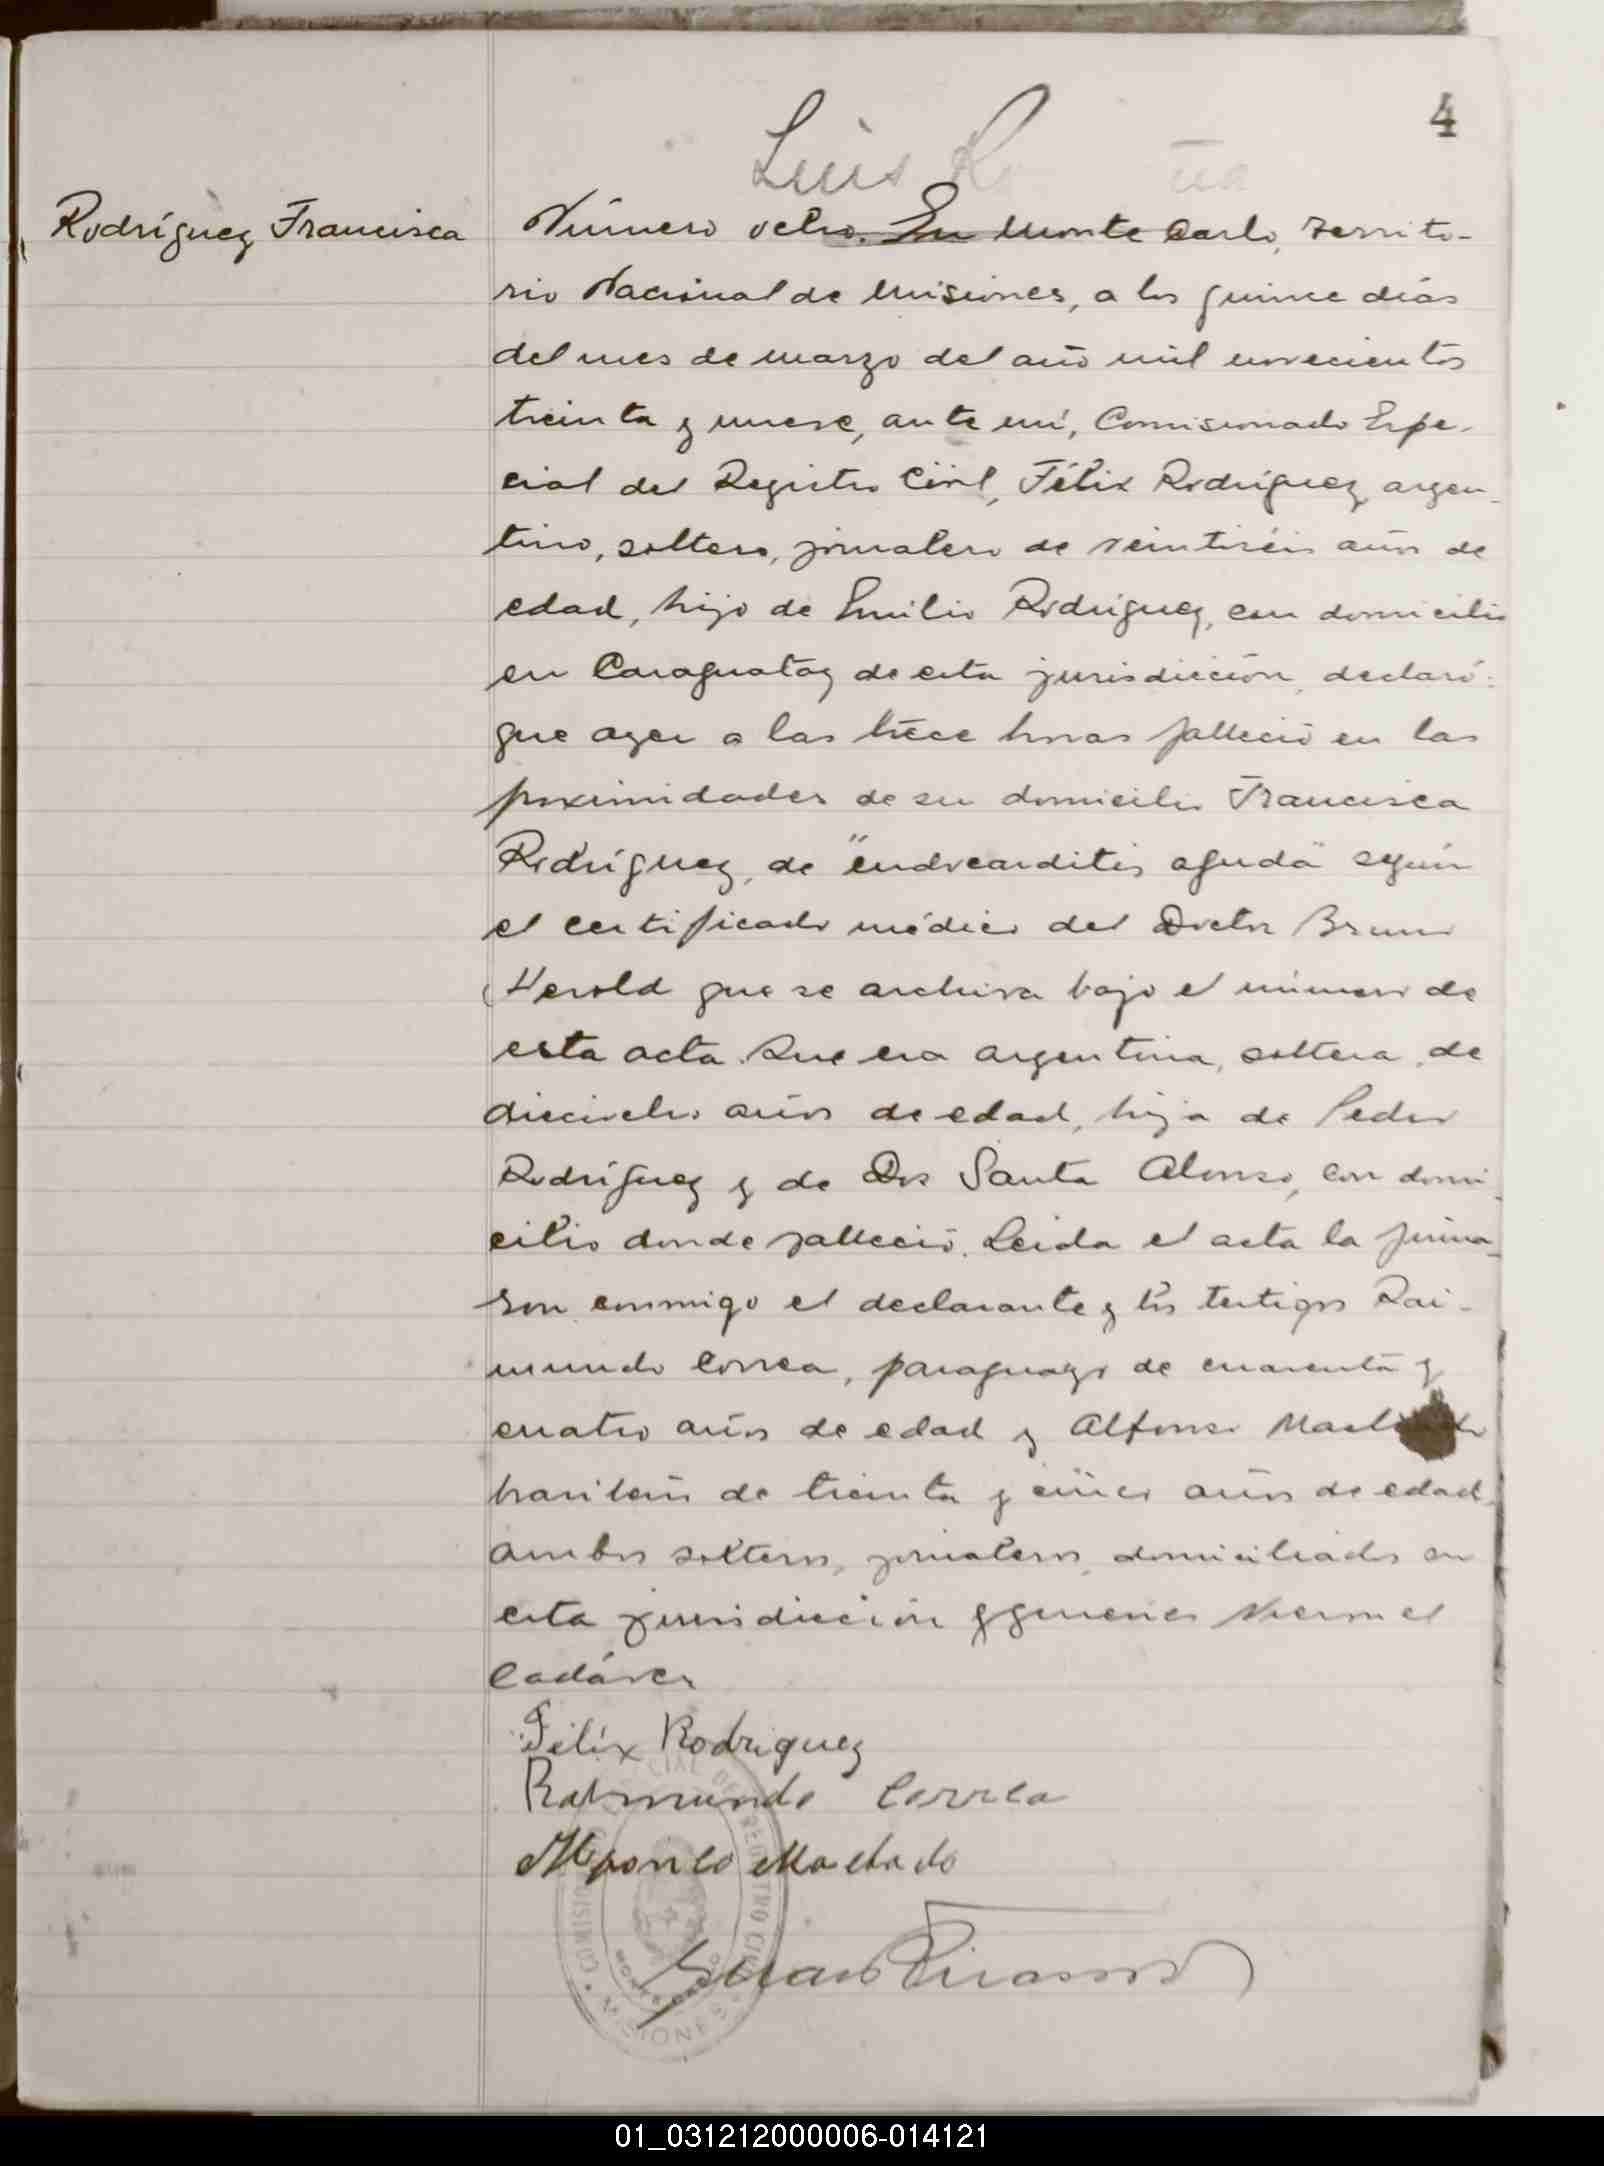 4
Luis
Rodríguez Francisca
Número ocho. En Monte Carlo, Territo-
rio Nacional de Misiones, a los quince días
del mes de marzo del año mil novecientos
treinta y nueve, ante mí, Comisionado Espe-
cial del Registro Civil, Félix Rodríguez, argen-
tino, soltero, jornalero de veintiséis años de
edad, hijo de Emilio Rodríguez, con domicilio
en Caraguatay de esta jurisdicción, declaró:
que ayer a las trece horas falleció en las
proximidades de su domicilio Francisca
Rodríguez, de "endocarditis aguda" según
el certificado médico del Doctor Bruno
Herold que se archiva bajo el número de
esta acta. Que era argentina, soltera, de
dieciocho años de edad, hija de Pedro
Rodríguez y de Dos Santa Alonso, con domi-
cilio donde falleció. Leída el acta la firma-
ron conmigo el declarante y los testigos Rai-
mundo Correa, paraguayo de cuarenta y
cuatro años de edad y Alfonso Machado
brasileño de treinta y cinco años de edad,
ambos solteros, jornaleros, domiciliados en
esta jurisdicción y quienes vieron el
cadáver
Félix Rodriguez
Raimundo Correa
Alfonso Machado
COMISIONADO ESPECIAL DEL REGISTRO CIVIL
MONTE CARLO
MISIONES
01_031212000006-014121